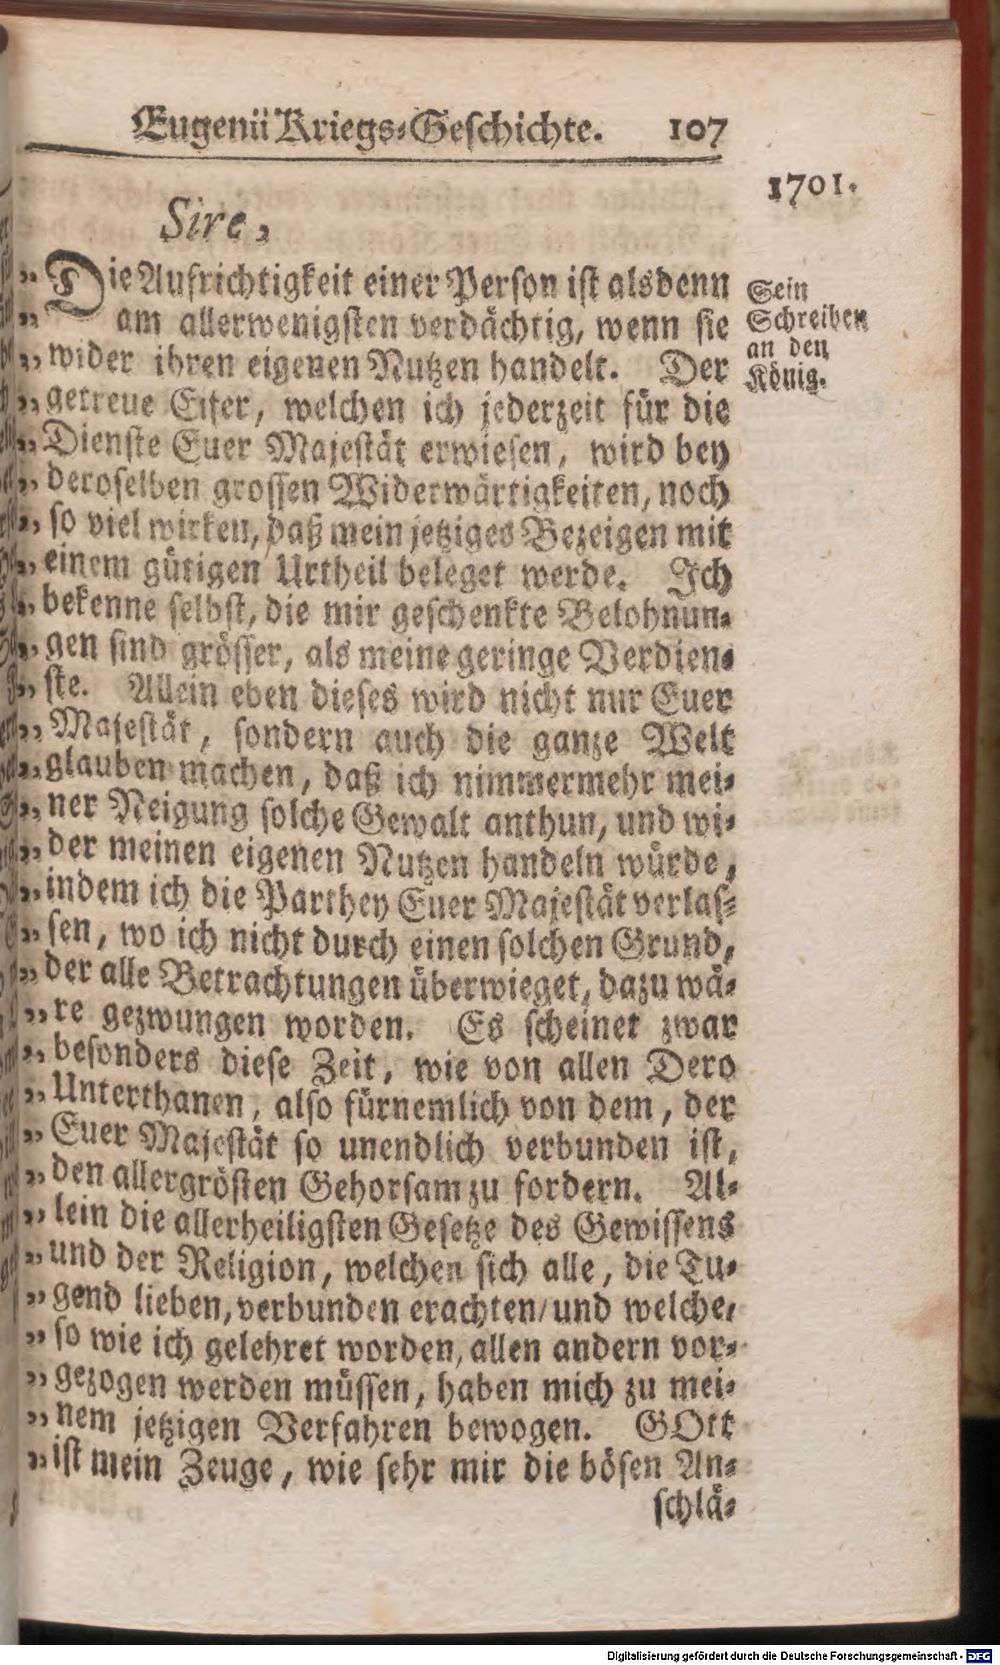 Eugenii Kriegs-Geschichte. 107
1701.
Sire,
„Die Aufrichtigkeit einer Person ist alsdenn
„am allerwenigsten verdächtig, wenn sie
„wider ihren eigenen Nutzen handelt. Der
„getreue Eifer, welchen ich jederzeit für die
„Dienste Euer Majestät erwiesen, wird bey
„deroselben grossen Widerwärtigkeiten, noch
„so viel wirken, daß mein jetziges Bezeigen mit
„einem gütigen Urtheil beleget werde. Ich
„bekenne selbst, die mir geschenkte Belohnun-
„gen sind grösser, als meine geringe Verdien-
„ste. Allein eben dieses wird nicht nur Euer
„Majestät, sondern auch die ganze Welt
„glauben machen, daß ich nimmermehr mei-
„ner Neigung solche Gewalt anthun, und wi-
„der meinen eigenen Nutzen handeln würde,
„indem ich die Parthey Euer Majestät verlas-
„sen, wo ich nicht durch einen solchen Grund,
„der alle Betrachtungen überwieget, dazu wä-
„re gezwungen worden. Es scheinet zwar
„besonders diese Zeit, wie von allen Dero
„Unterthanen, also fürnemlich von dem, der
„Euer Majestät so unendlich verbunden ist,
„den allergrösten Gehorsam zu fordern. Al-
„lein die allerheiligsten Gesetze des Gewissens
„und der Religion, welchen sich alle, die Tu-
„gend lieben, verbunden erachten/ und welche,
„so wie ich gelehret worden, allen andern vor-
„gezogen werden müssen, haben mich zu mei-
„nem jetzigen Verfahren bewogen. GOtt
„ist mein Zeuge, wie sehr mir die bösen An-
schlä-
Sein
Schreiben
an den
König.
Digitalisierung gefördert durch die Deutsche Forschungsgemeinschaft - DFG